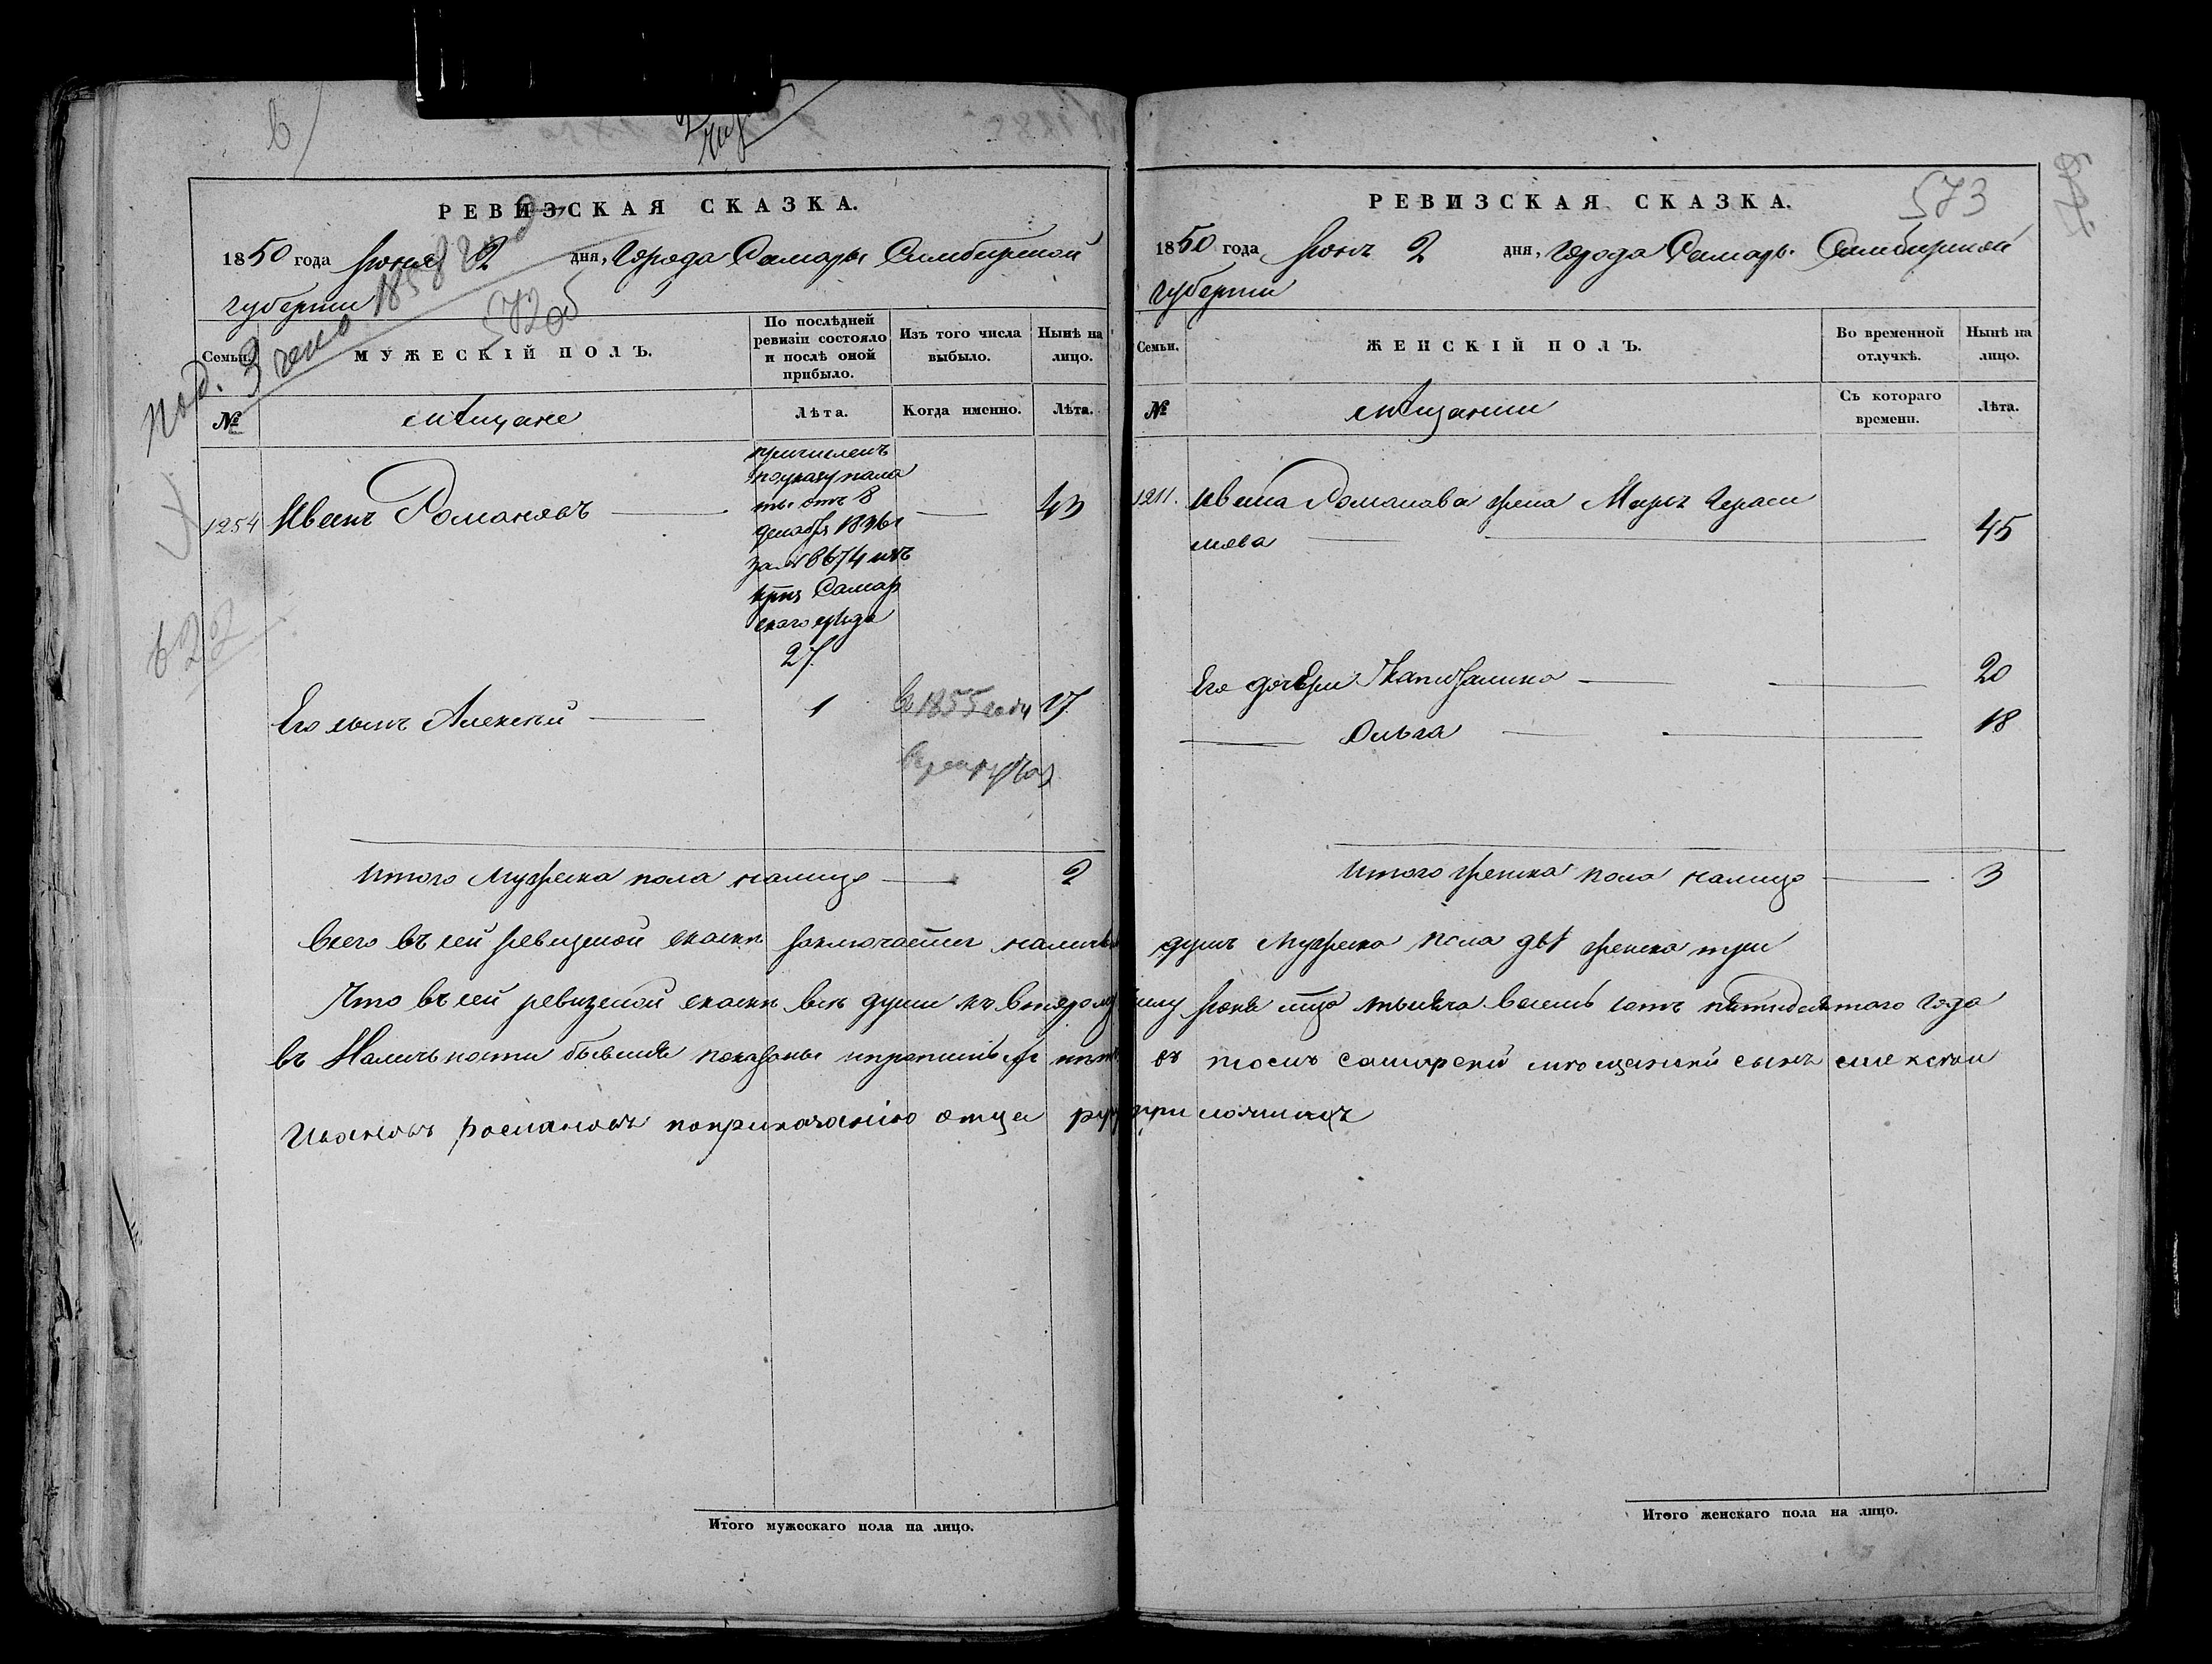 РЕВИЗСКАЯ СКАЗКА.
1850 года Июня 2 дня, Города Самары Симбирской
губернии
572об
Семьи.
МУЖЕСКІЙ ПОЛЪ.
По послѣдней ревизіи состояло и послѣ оной прибыло.
Изъ того числа выбыло.
Нынѣ на лицо.
№
мѣщане
Лѣта.
Когда именно.
Лѣта.
причисленъ
по указу пала
ты отъ 8
декабря
за № 8674 изъ
Самар
скаго уѣзда
27.
1254 Иванъ Романовъ 43
622
Его сынъ Алексѣй 1 в 1855 году 17
в рекруты
Итого мужеска пола налицо 2
Всего въ сей ревизской сказкѣ заключается
Что въ сей ревизской сказкѣ всѣ души къ второму
въ наличности бывшія показаны и прописныхъ нѣтъ
Ивановъ романовъ поприказанію отца
Итого мужескаго пола на лицо.
РЕВИЗСКАЯ СКАЗКА.
573
1850 года Июня 2 дня, города Самары Симбирской
губернии
Семьи.
ЖЕНСКІЙ ПОЛЪ.
Во временной отлучкѣ.
Нынѣ на лицо.
№
мѣщанки
Съ котораго времени.
Лѣта.
1211. Ивана Романова жена Марья Гераси
мова 45
Его дочери Капитолина 20
Ольга 18
Итого женска пола налицо 3
душъ мужеска пола двѣ женска три
числу Июня тысяча восемь сотъ пятидесятаго года
въ томъ самарской мещанской сынъ алексѣй
руку приложилъ
Итого женскаго пола на лицо.